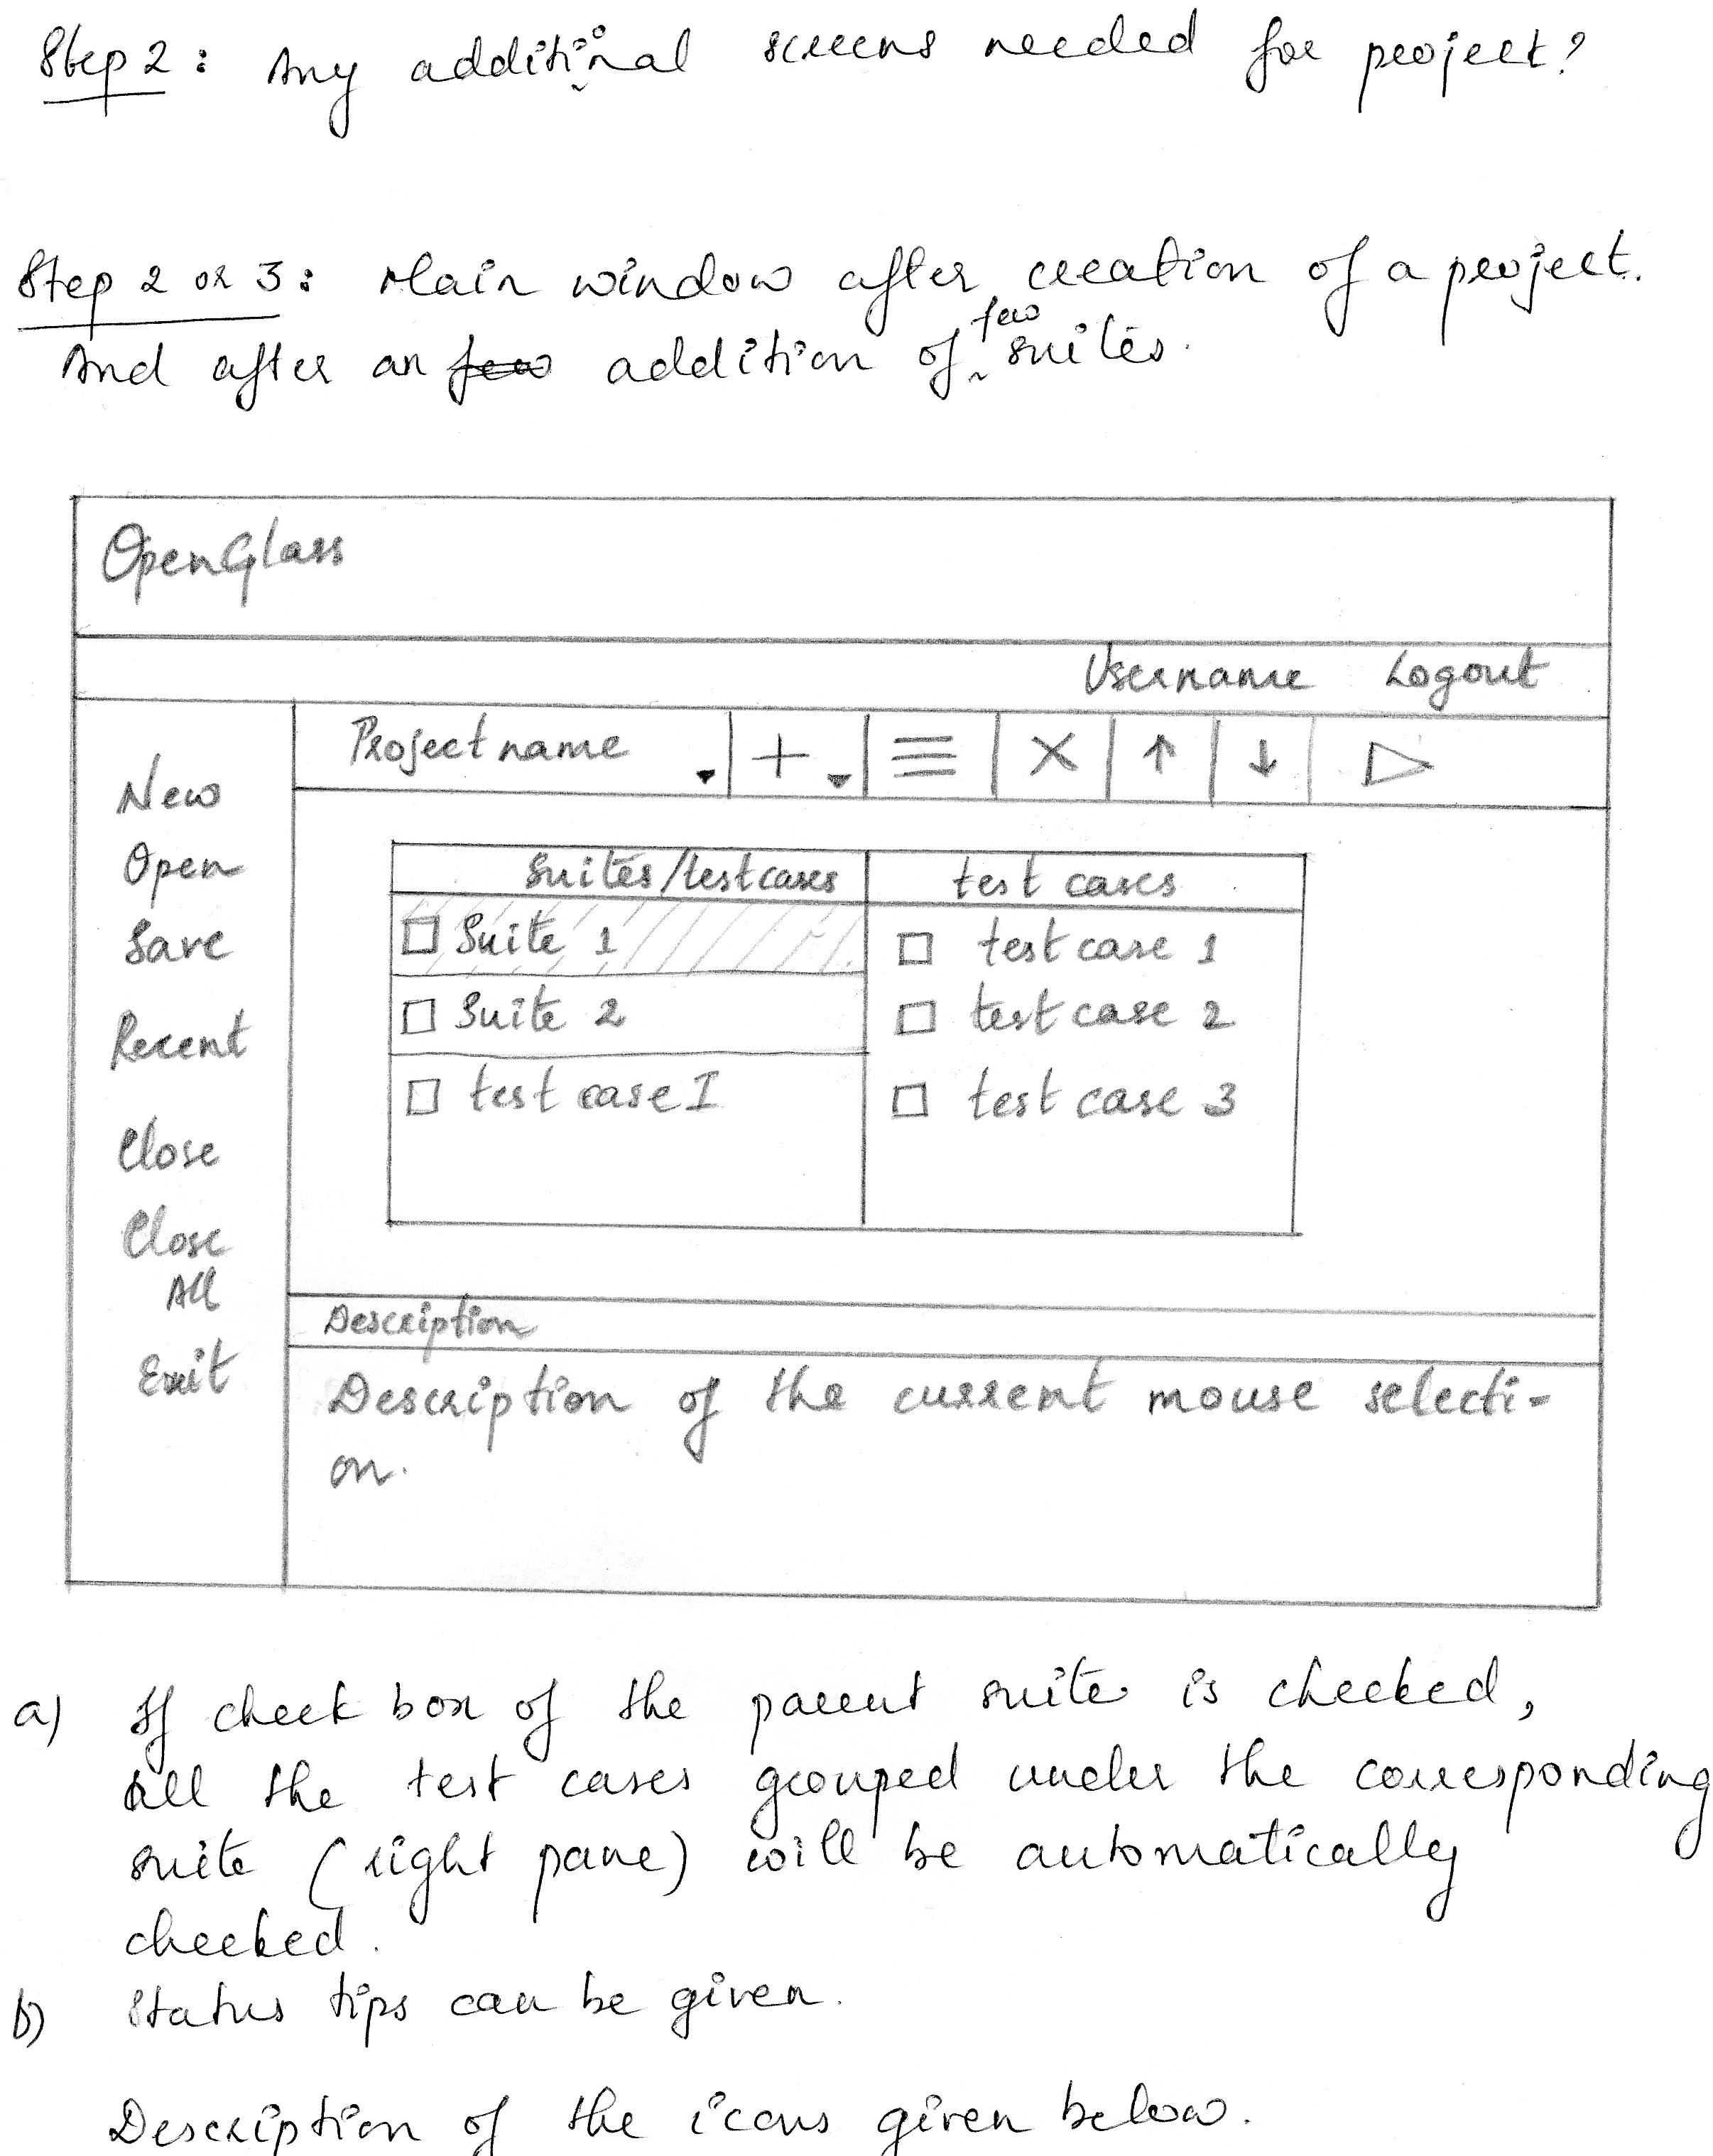 Step 2: Any additional screens needed for project?
Step 2 or 3: Main window after creation of a project.
And after an ~~few~~ addition of few suites.
OpenGlass
Username Logout
Project name + ≡ X ↑ ↓ ▷
New
Open
Save
Recent
Close
Close
All
Exit
Suites/testcases test cases
Suite 1 test case 1
Suite 2 test case 2
test case I test case 3
Description
Description of the current mouse selecti-
on.
a) If check box of the parent suite is checked,
all the test cases grouped under the corresponding
suite (right pane) will be automatically
checked.
b) Status tips can be given.
Description of the icons given below.